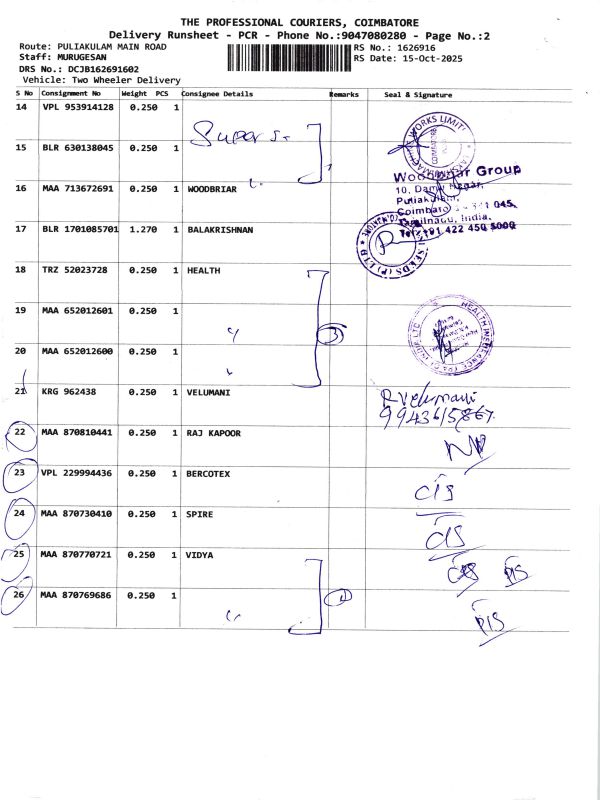 THE PROFESSIONAL COURIERS, COIMBATORE
Delivery Runsheet - PCR - Phone No.:9047080280 - Page No.:2
Route: PULIAKULAM MAIN ROAD RS No.: 1626916
Staff: MURUGESAN RS Date: 15-Oct-2025
DRS No.: DCJB162691602
Vehicle: Two Wheeler Delivery
S No Consignment No Weight PCS Consignee Details Remarks Seal & Signature
14 VPL 953914128 0.250 1
Super s.
15 BLR 630138045 0.250 1
16 MAA 713672691 0.250 1 WOODBRIAR
Woodbriar Group
10, Damu Nagar,
Puliakulam,
Coimbatore 641 045,
Tamilnadu, India.
Tel: +91 422 450 5000
17 BLR 1701085701 1.270 1 BALAKRISHNAN
18 TRZ 52023728 0.250 1 HEALTH
19 MAA 652012601 0.250 1
3
20 MAA 652012600 0.250 1
21 KRG 962438 0.250 1 VELUMANI
R Velumani
9943615867
22 MAA 870810441 0.250 1 RAJ KAPOOR
23 VPL 229994436 0.250 1 BERCOTEX
CIS
24 MAA 870730410 0.250 1 SPIRE
CIS
25 MAA 870770721 0.250 1 VIDYA
26 MAA 870769686 0.250 1